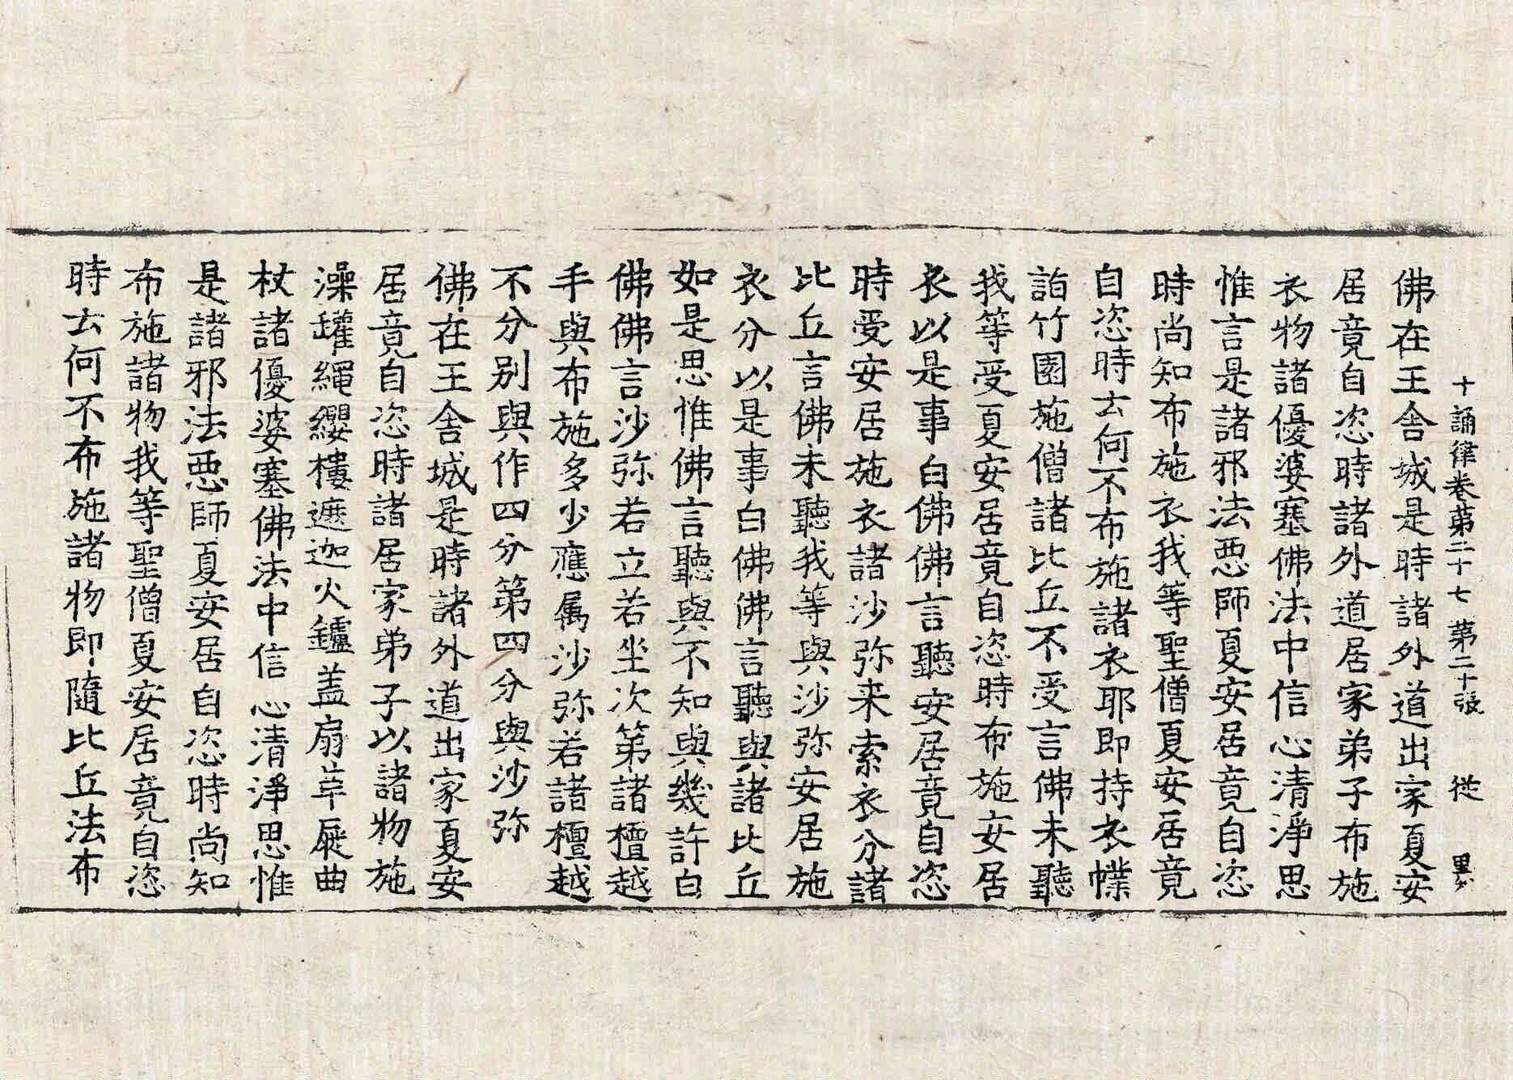 十誦律卷第二十七 第二十張 従
佛在王舍城是時諸外道出家夏安
居竟自恣時諸外道居家弟子布施
衣物諸優婆塞佛法中信心清淨思
惟言是諸邪法惡師夏安居竟自恣
時尚知布施衣我等聖僧夏安居竟
自恣時云何不布施諸衣耶即持衣㲲
詣竹園施僧諸比丘不受言佛未聽
我等受夏安居竟自恣時布施安居
衣以是事白佛佛言聽安居竟自恣
時受安居施衣諸沙弥来索衣分諸
比丘言佛未聽我等與沙弥安居施
衣分以是事白佛佛言聽與諸比丘
如是思惟佛言聽與不知與幾許白
佛佛言沙弥若立若坐次第諸檀越
手與布施多少應属沙弥若諸檀越
不分別與作四分第四分與沙弥
佛在王舍城是時諸外道出家夏安
居竟自恣時諸居家弟子以諸物施
澡罐繩纓樓遮迦火鑪盖扇傘屣曲
杖諸優婆塞佛法中信心清淨思惟
是諸邪法惡師夏安居自恣時尚知
布施諸物我等聖僧夏安居竟自恣
時云何不布施諸物即隨比丘法布